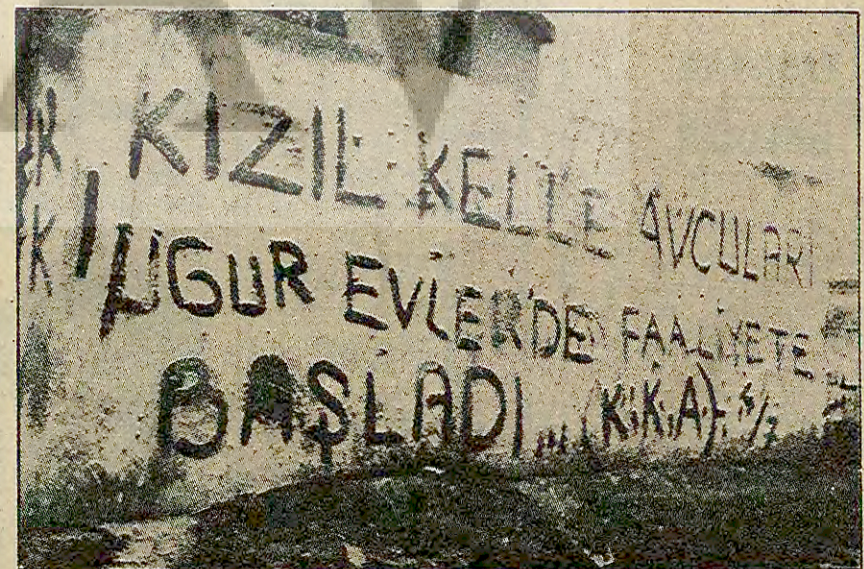 KIZIL KELLE AVCULARI
UGUR EVLER'DE FAALİYETE
BAŞLADI... (K.K.A)